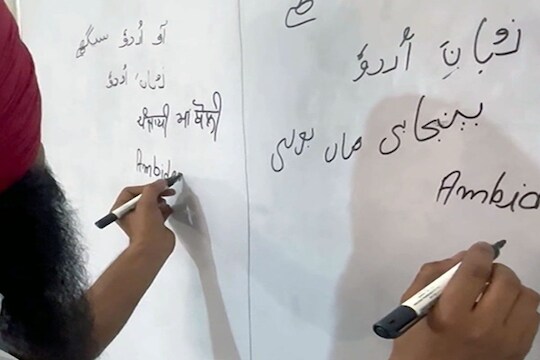 آو اُردُو سکھے
زبانِ اُردُو
ਪੰਜਾਬੀ ਮਾਂ ਬੋਲੀ
Ambide
زبانِ اُردُو
پنجابی ماں بولی
Ambid